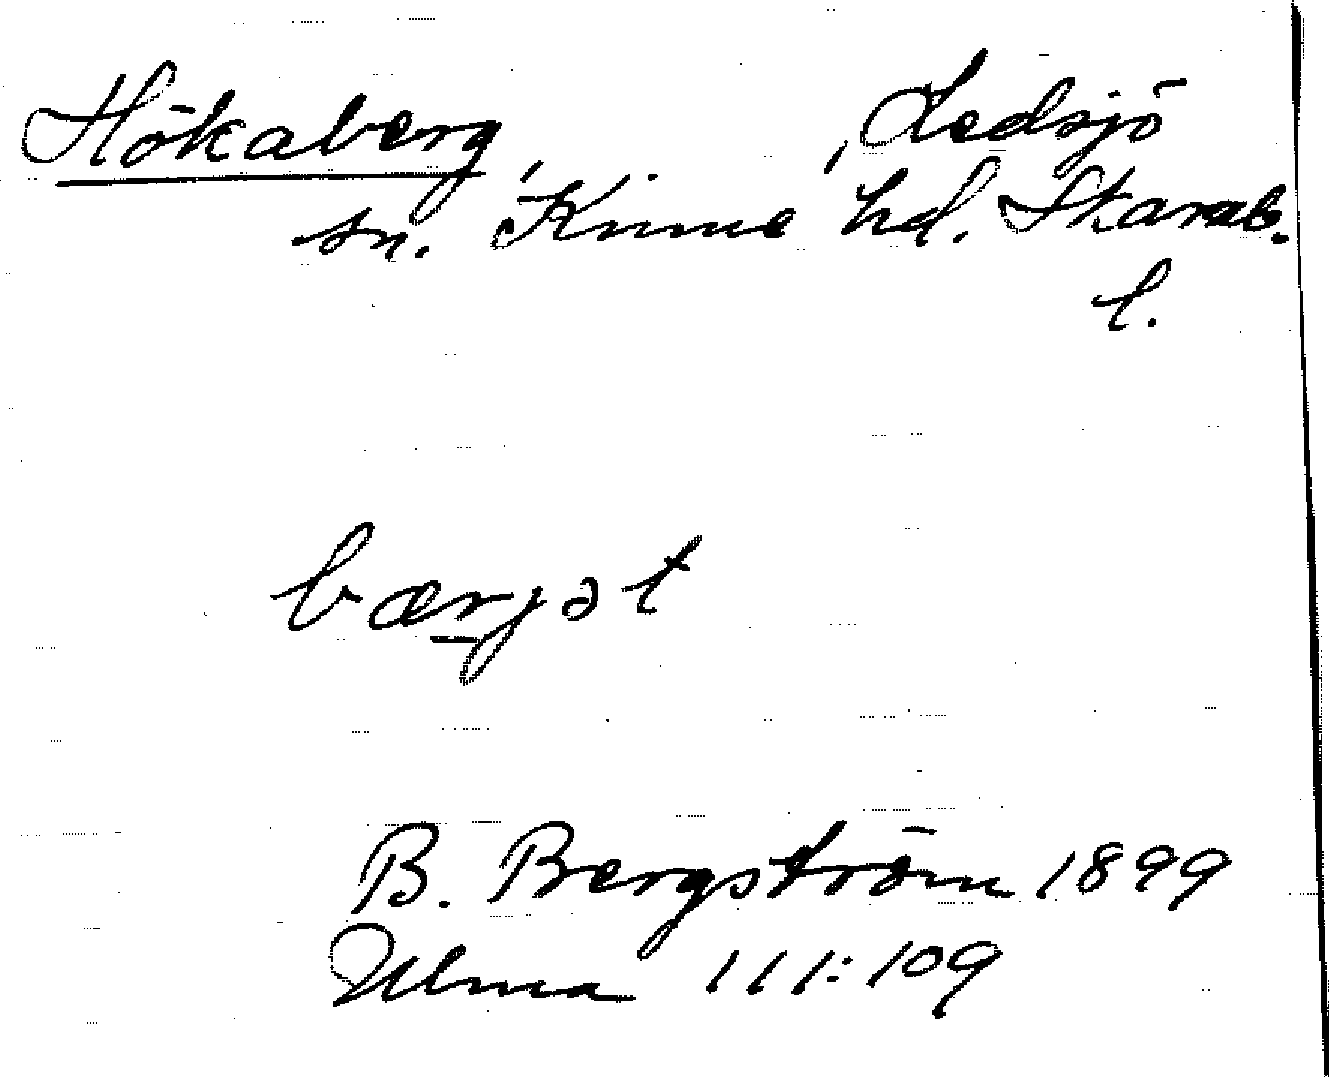 Hökaberg, Ledsjö
sn. Kinne hd. Skarab.
l.
bærjət
B. Bergström 1899
Ulma 111:109